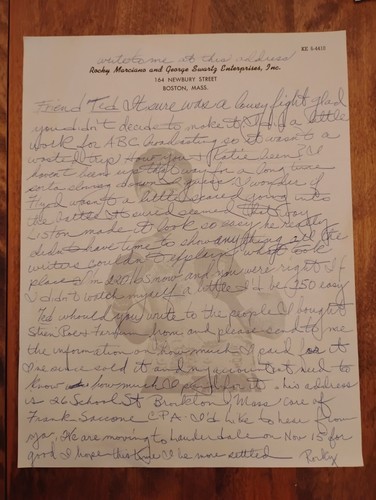 write to me at this address
KE 6-4635
Rocky Marciano and George Swartz Enterprises, Inc.
164 NEWBURY STREET
BOSTON, MASS.
Friend Ted It sure was a lousy fight glad
you didn't decide to make it I did a little
work for ABC broadcasting so it wasn't a
wasted trip How you & Katie been? I
haven't been up that way for a long time
sorta slowing down I guess I wonder if
Floyd wasn't a little scared going into
the battle it sure seemed that way
Liston made it look so easy he really
didn't have time to show anything all the
writers couldn't explain what took
place I'm 220 lbs now and you were right if
I didn't watch myself a little I'd be 250 easy
Ted would you write to the people I bought
Steer from and please send to me
the information on how much I paid for it
I've since sold it and my accountant need to
know how much I paid for it. his address
is 26 School St Brockton, Mass care of
Frank Saccone CPA. I'd like to hear from
ya. We are moving to Lauderdale on Nov 15 for
good I hope this time I be more settled
Rocky